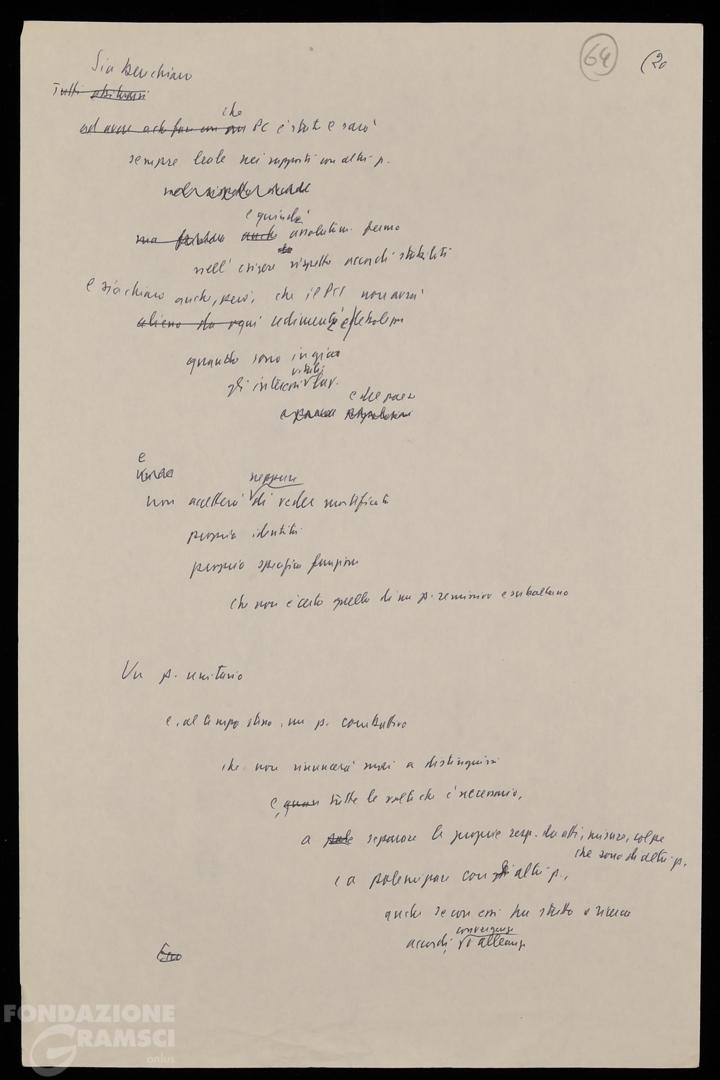 64 (20
Sia ben chiaro
Tutti
che
PC è stato e sarà
sempre leale nei rapporti con altri p.
e quindi
assolutam. fermo
nell' esigere rispetto accordi stabiliti
E sia chiaro anche, però, che il PCI non avrà
cedimenti e debolezze
quando sono in gioco
vitali
gli interessi lav.
e del paese
e
non accetterà di veder mortificata
neppure
propria identità
propria specifica funzione
che non è certo quella di un p. remissivo e subalterno
Un p. unitario
e, al tempo stesso, un p. combattivo
che non rinuncerà mai a distinguersi
e, tutte le volte che è necessario,
a separare le proprie resp. da atti, misure, colpe
che sono di altri p.,
e a polemizzare con gli altri p.,
anche se con essi ha stretto o ricerca
convergenze
accordi, o alleanze
FONDAZIONE
GRAMSCI
onlus